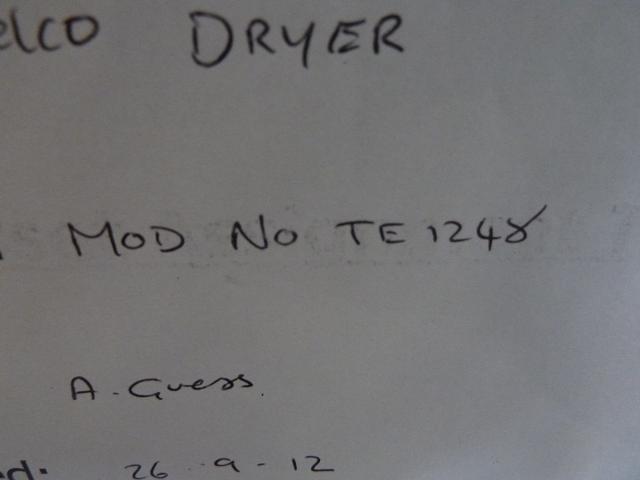 elco DRYER
MOD No TE 1248
A. Guess.
ed: 26.9-12